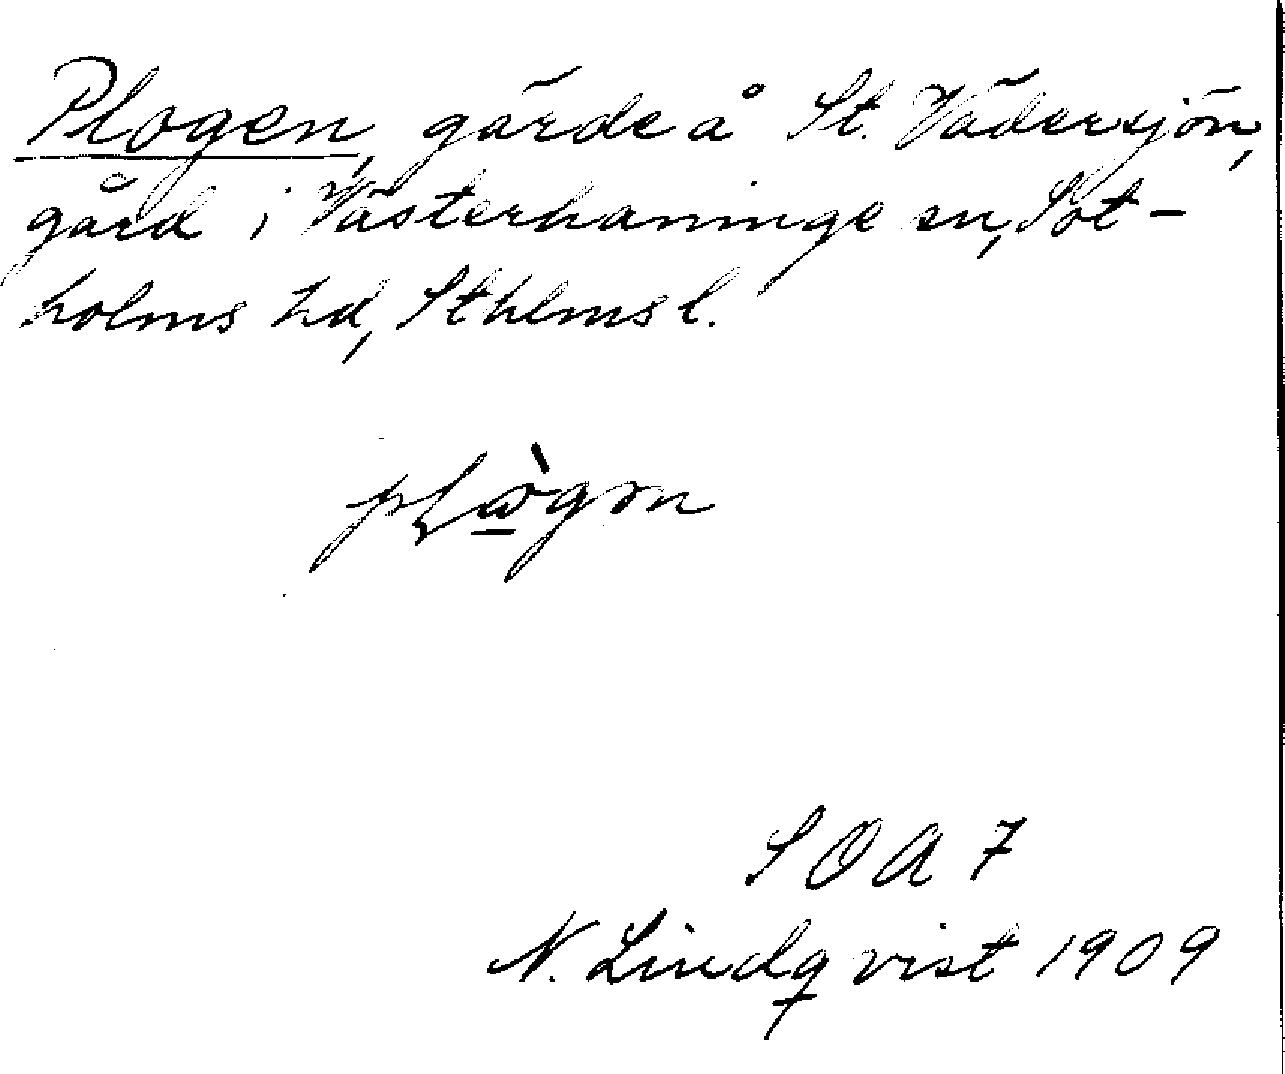 Plogen, gärde å St. Vädersjön,
gård i Västerhaninge sn, Sot-
holms hd, Sthlms l.
SOA 7
N. Lindqvist 1909